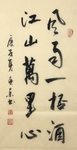 風雨一杯酒
江山萬里心
庚子